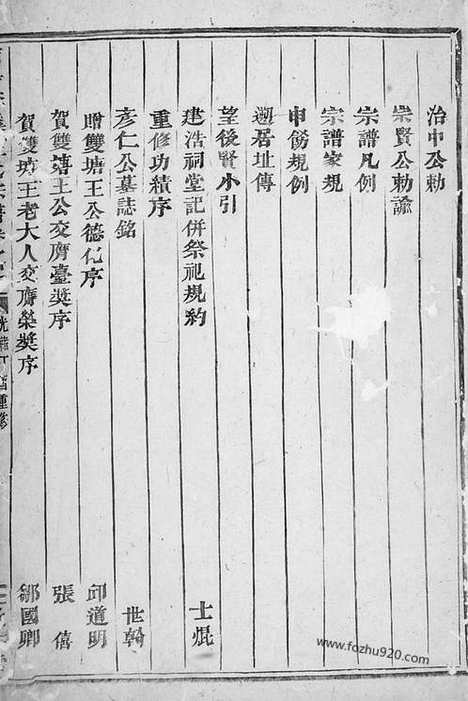 治中公勅
崇賢公勅諭
宗譜凡例
宗譜家規
申飭規例
遡居址傳
望後賢小引
建浩祠堂記併祭祀規約 士焜
重修功績序
彥仁公墓誌銘 世翰
贈雙塘王公德化序 邱道明
賀雙塘王公交膺臺奬序 張僖
賀雙塘王老大人交膺榮奬序 鄒國卿
重修
www.fozhu920.com